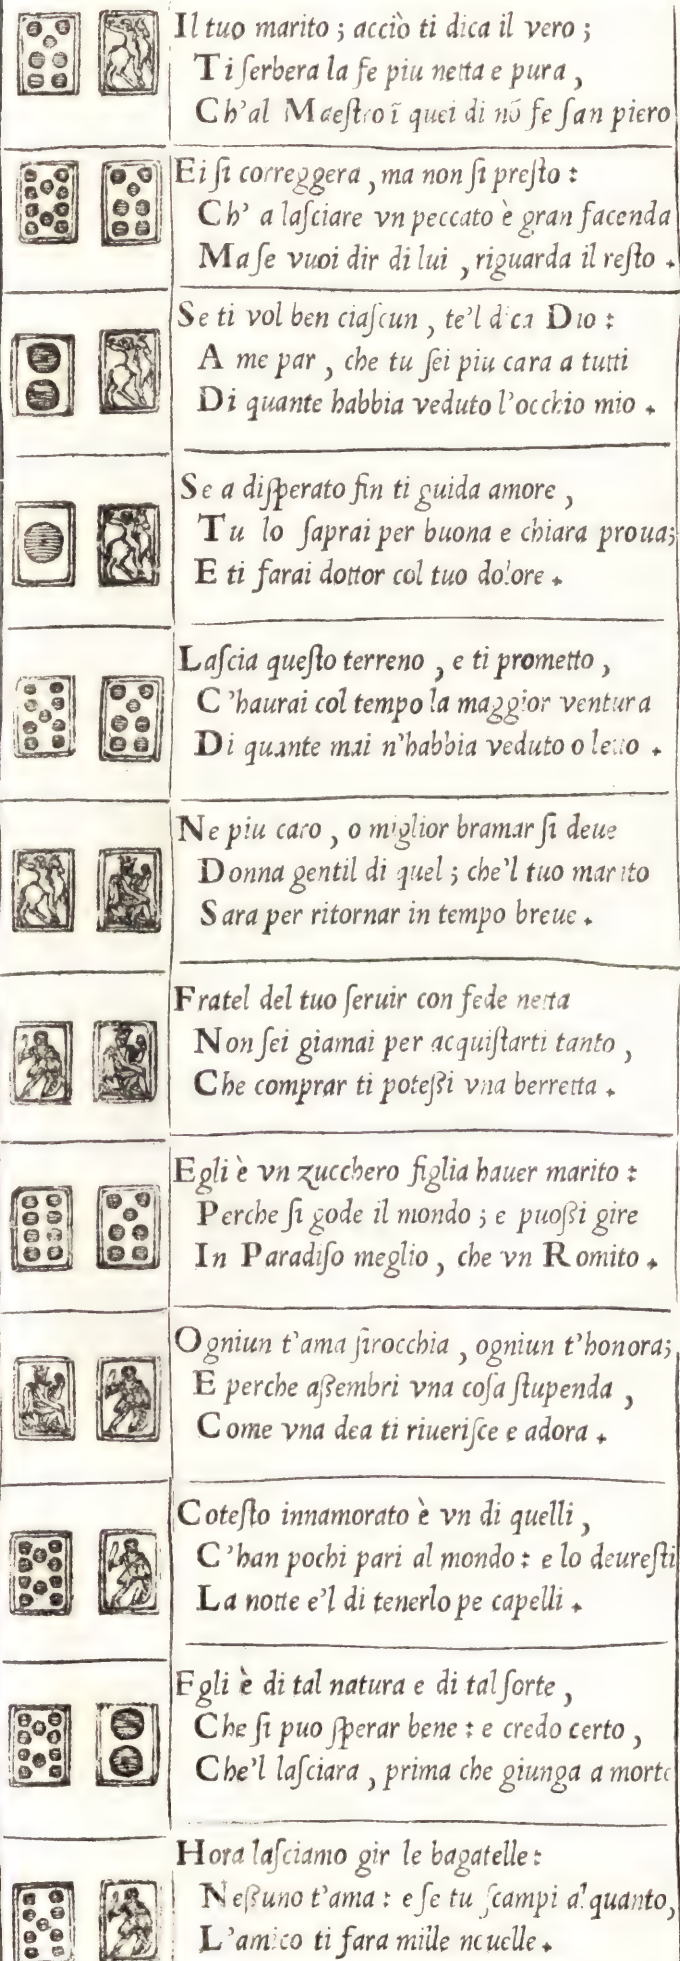 Il tuo marito ; acciò ti dica il vero ;
Ti ſerbera la fe piu netta e pura ,
Ch'al Maeſtro ĩ quei di nõ fe ſan piero
Ei ſi correggera , ma non ſi preſto :
Ch' a laſciare vn peccato è gran facenda
Ma ſe vuoi dir di lui , riguarda il reſto .
Se ti vol ben ciaſcun , te'l dica Dio :
A me par , che tu ſei piu cara a tutti
Di quante habbia veduto l'occhio mio .
Se a diſperato fin ti guida amore ,
Tu lo ſaprai per buona e chiara proua;
E ti farai dottor col tuo dolore .
Laſcia queſto terreno , e ti prometto ,
C'haurai col tempo la maggior ventura
Di quante mai n'habbia veduto o letto .
Ne piu caro , o miglior bramar ſi deue
Donna gentil di quel ; che'l tuo marito
Sara per ritornar in tempo breue .
Fratel del tuo ſeruir con fede netta
Non ſei giamai per acquiſtarti tanto ,
Che comprar ti poteſſi vna berretta .
Egli è vn zucchero figlia hauer marito :
Perche ſi gode il mondo ; e puoſſi gire
In Paradiſo meglio , che vn Romito .
Ogniun t'ama ſirocchia , ogniun t'honora;
E perche aſſembri vna coſa ſtupenda ,
Come vna dea ti riueriſce e adora .
Coteſto innamorato è vn di quelli ,
C'han pochi pari al mondo : e lo deureſti
La notte e'l di tenerlo pe capelli .
Egli è di tal natura e di tal ſorte ,
Che ſi puo ſperar bene : e credo certo ,
Che'l laſciara , prima che giunga a morte
Hora laſciamo gir le bagatelle :
Neſſuno t'ama : e ſe tu ſcampi alquanto,
L'amico ti fara mille nouelle .